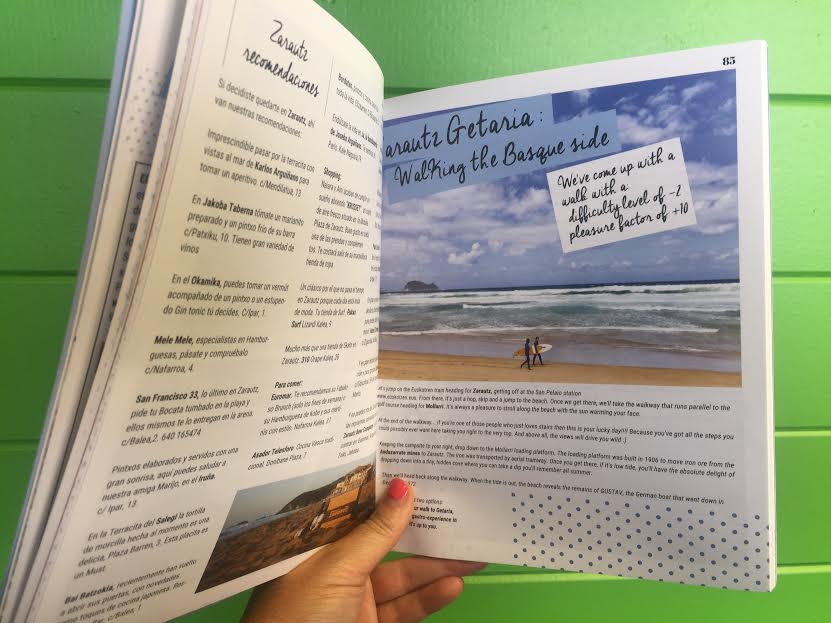 Zarautz
recomendaciones
Si decidiste quedarte en Zarautz, ahí
van nuestras recomendaciones:
Imprescindible pasar por la terracita con
vistas al mar de Karlos Arguiñano para
tomar un aperitivo. c/Mendilauta, 13
En Jakoba Taberna tómate un marianito
preparado y un pintxo frío de su barra
c/Patxiku, 10. Tienen gran variedad de
vinos
En el Okamika, puedes tomar un vermút
acompañado de un pintxo o un estupen-
do Gin tonic tú decides. C/Ipar, 1.
Mele Mele, especialistas en Hambur-
guesas, pásate y compruébalo
c/Nafarroa, 4.
San Francisco 33, lo último en Zarautz,
pide tu Bocata tumbado en la playa y
ellos mismos te lo entregan en la arena.
c/Balea,2. 640 165474
Pintxos elaborados y servidos con una
gran sonrisa, aquí puedes saludar a
nuestra amiga Marijo, en el Iruña.
c/ Ipar, 13
En la Terracita del Salegi la tortilla
de morcilla hecha al momento es una
delicia, Plaza Barren, 3. Esta placita es
un Must.
Bai Batzokia, recientemente han vuelto
a abrir sus puertas, con novedades
como toques de cocina japonesa. Res-
Bar. c/Balea, 1
Shopping:
Plaza de Zarautz.
tienda de ropa.
Un clásico por el que no pasa el tiempo
en Zarautz porque cada día está más
de moda. Tu tienda de Surf. Pukas
Surf Lizardi Kalea, 9
Mucho más que una tienda de Skate en
Zarautz. 310 Orape Kalea, 20
Para comer:
Euromar. Te recomendamos su fabulo-
so Brunch (solo los fines de semana) o
su Hamburguesa de Kobe y sus marti-
nis con estilo. Nafarroa Kalea 37
Azador Telesforo. Cocina Vasca tradi-
cional. Donibane Plaza, 7
85
arautz Getaria:
Walking the Basque side
We've come up with a
walk with a
difficulty level of -2
pleasure factor of +10
Let's jump on the Euskotren train heading for Zarautz, getting off at the San Pelaio station
www.euskotren.eus. From there, it's just a hop, skip and a jump to the beach. Once we get there, we'll take the walkway that runs parallel to the
golf course heading for Mollarri. It's always a pleasure to stroll along the beach with the sun warming your face.
At the end of the walkway... if you're one of those people who just loves stairs then this is your lucky day!!! Because you've got all the steps you
could possibly ever want here taking you right to the very top. And above all, the views will drive you wild :)
Keeping the campsite to your right, drop down to the Mollarri loading platform. The loading platform was built in 1906 to move iron ore from the
Andazarrate mines to Zarautz. The iron was transported by aerial tramway. Once you get there, if it's low tide, you'll have the absolute delight of
dropping down into a tiny, hidden cove where you can take a dip you'll remember all summer.
Then we'll head back along the walkway. When the tide is out, the beach reveals the remains of GUSTAV, the German boat that went down in
two options:
ur walk to Getaria,
gastro-experience in
it's up to you.